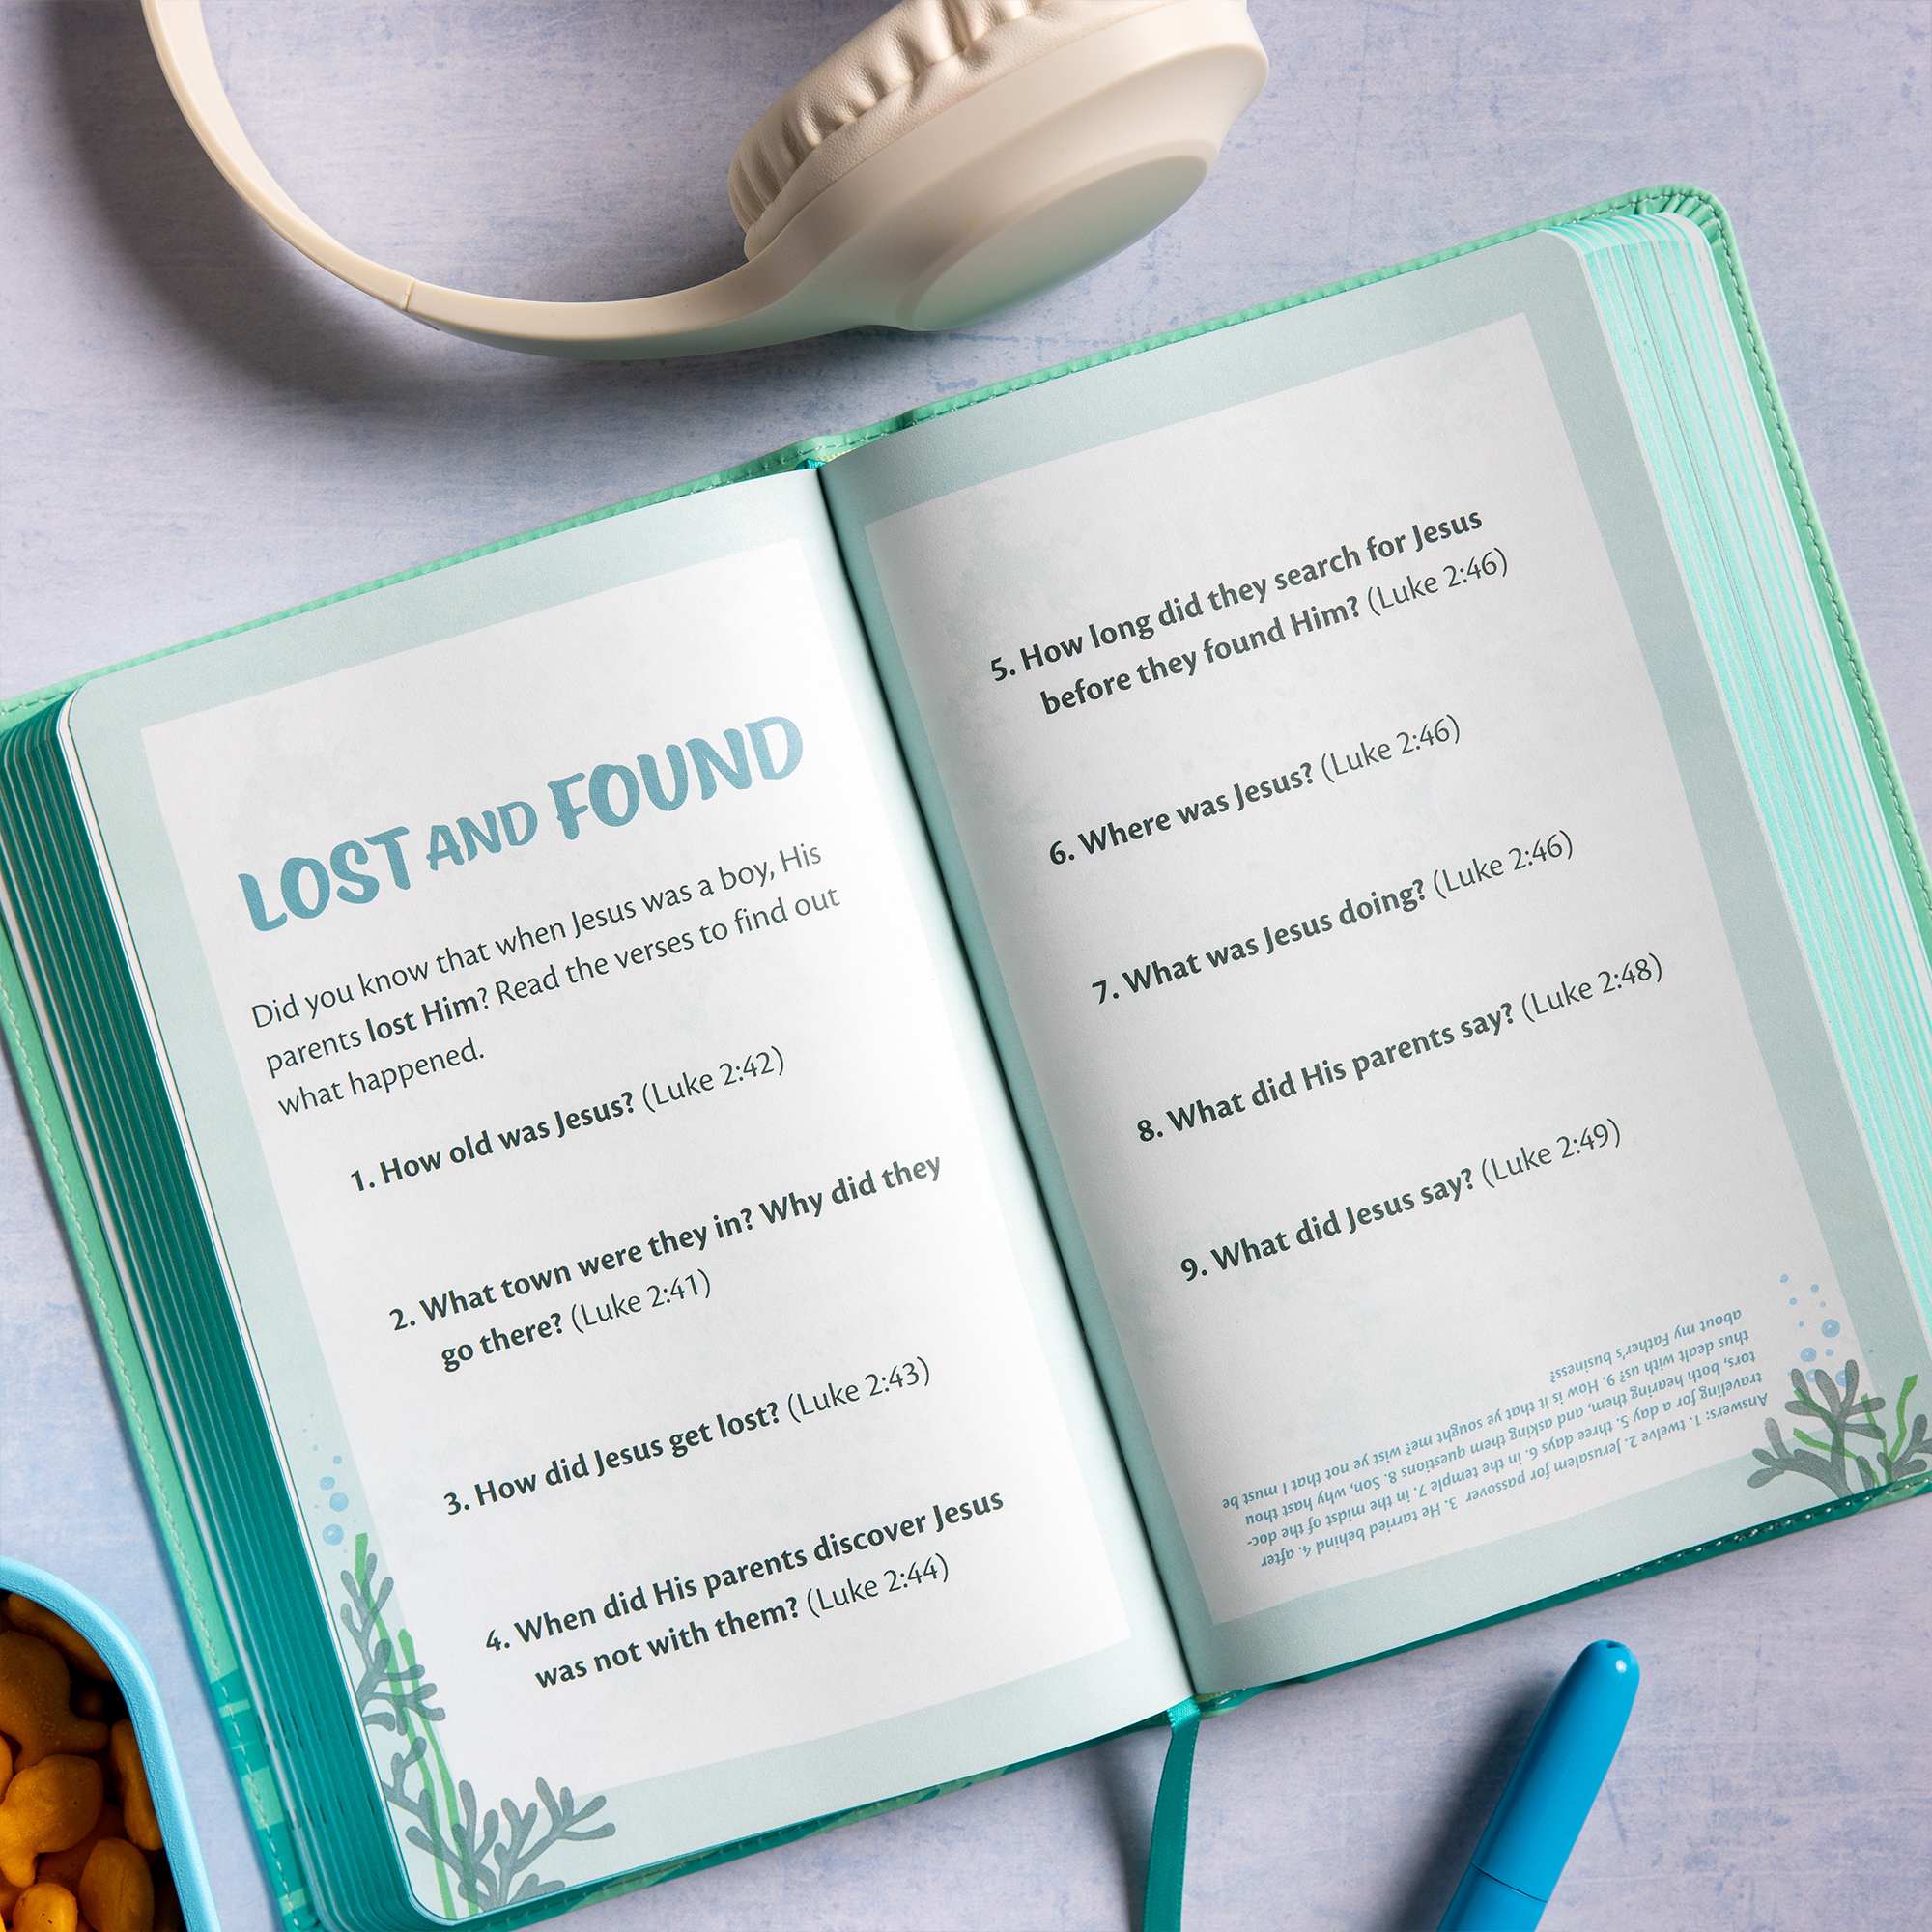 LOST AND FOUND
Did you know that when Jesus was a boy, His
parents lost Him? Read the verses to find out
what happened.
1. How old was Jesus? (Luke 2:42)
2. What town were they in? Why did they
go there? (Luke 2:41)
3. How did Jesus get lost? (Luke 2:43)
4. When did His parents discover Jesus
was not with them? (Luke 2:44)
5. How long did they search for Jesus
before they found Him? (Luke 2:46)
6. Where was Jesus? (Luke 2:46)
7. What was Jesus doing? (Luke 2:46)
8. What did His parents say? (Luke 2:48)
9. What did Jesus say? (Luke 2:49)
Answers: 1. twelve 2. Jerusalem for passover 3. He tarried behind 4. after
traveling for a day 5. three days 6. in the temple 7. in the midst of the doc-
tors, both hearing them, and asking them questions 8. Son, why hast thou
thus dealt with us? 9. How is it that ye sought me? wist ye not that I must be
about my Father's business?